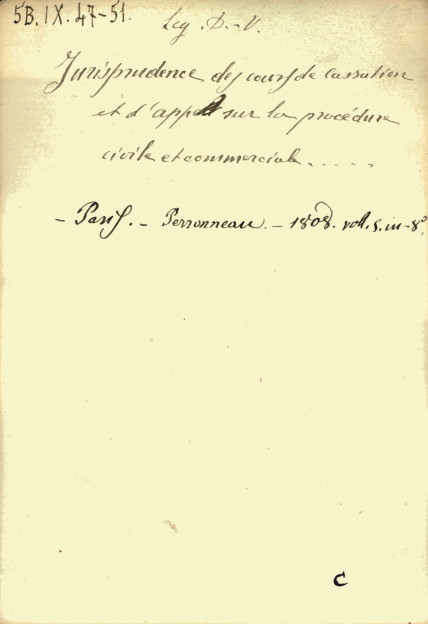 5B. IX. 47-51.
Leg. D.-V.
Jurisprudence des cours de cassation
et d'appel sur la procédure
civile et commerciale.....
- Paris. - Perronneau. - 1808. voll. 5. in-8º.
C